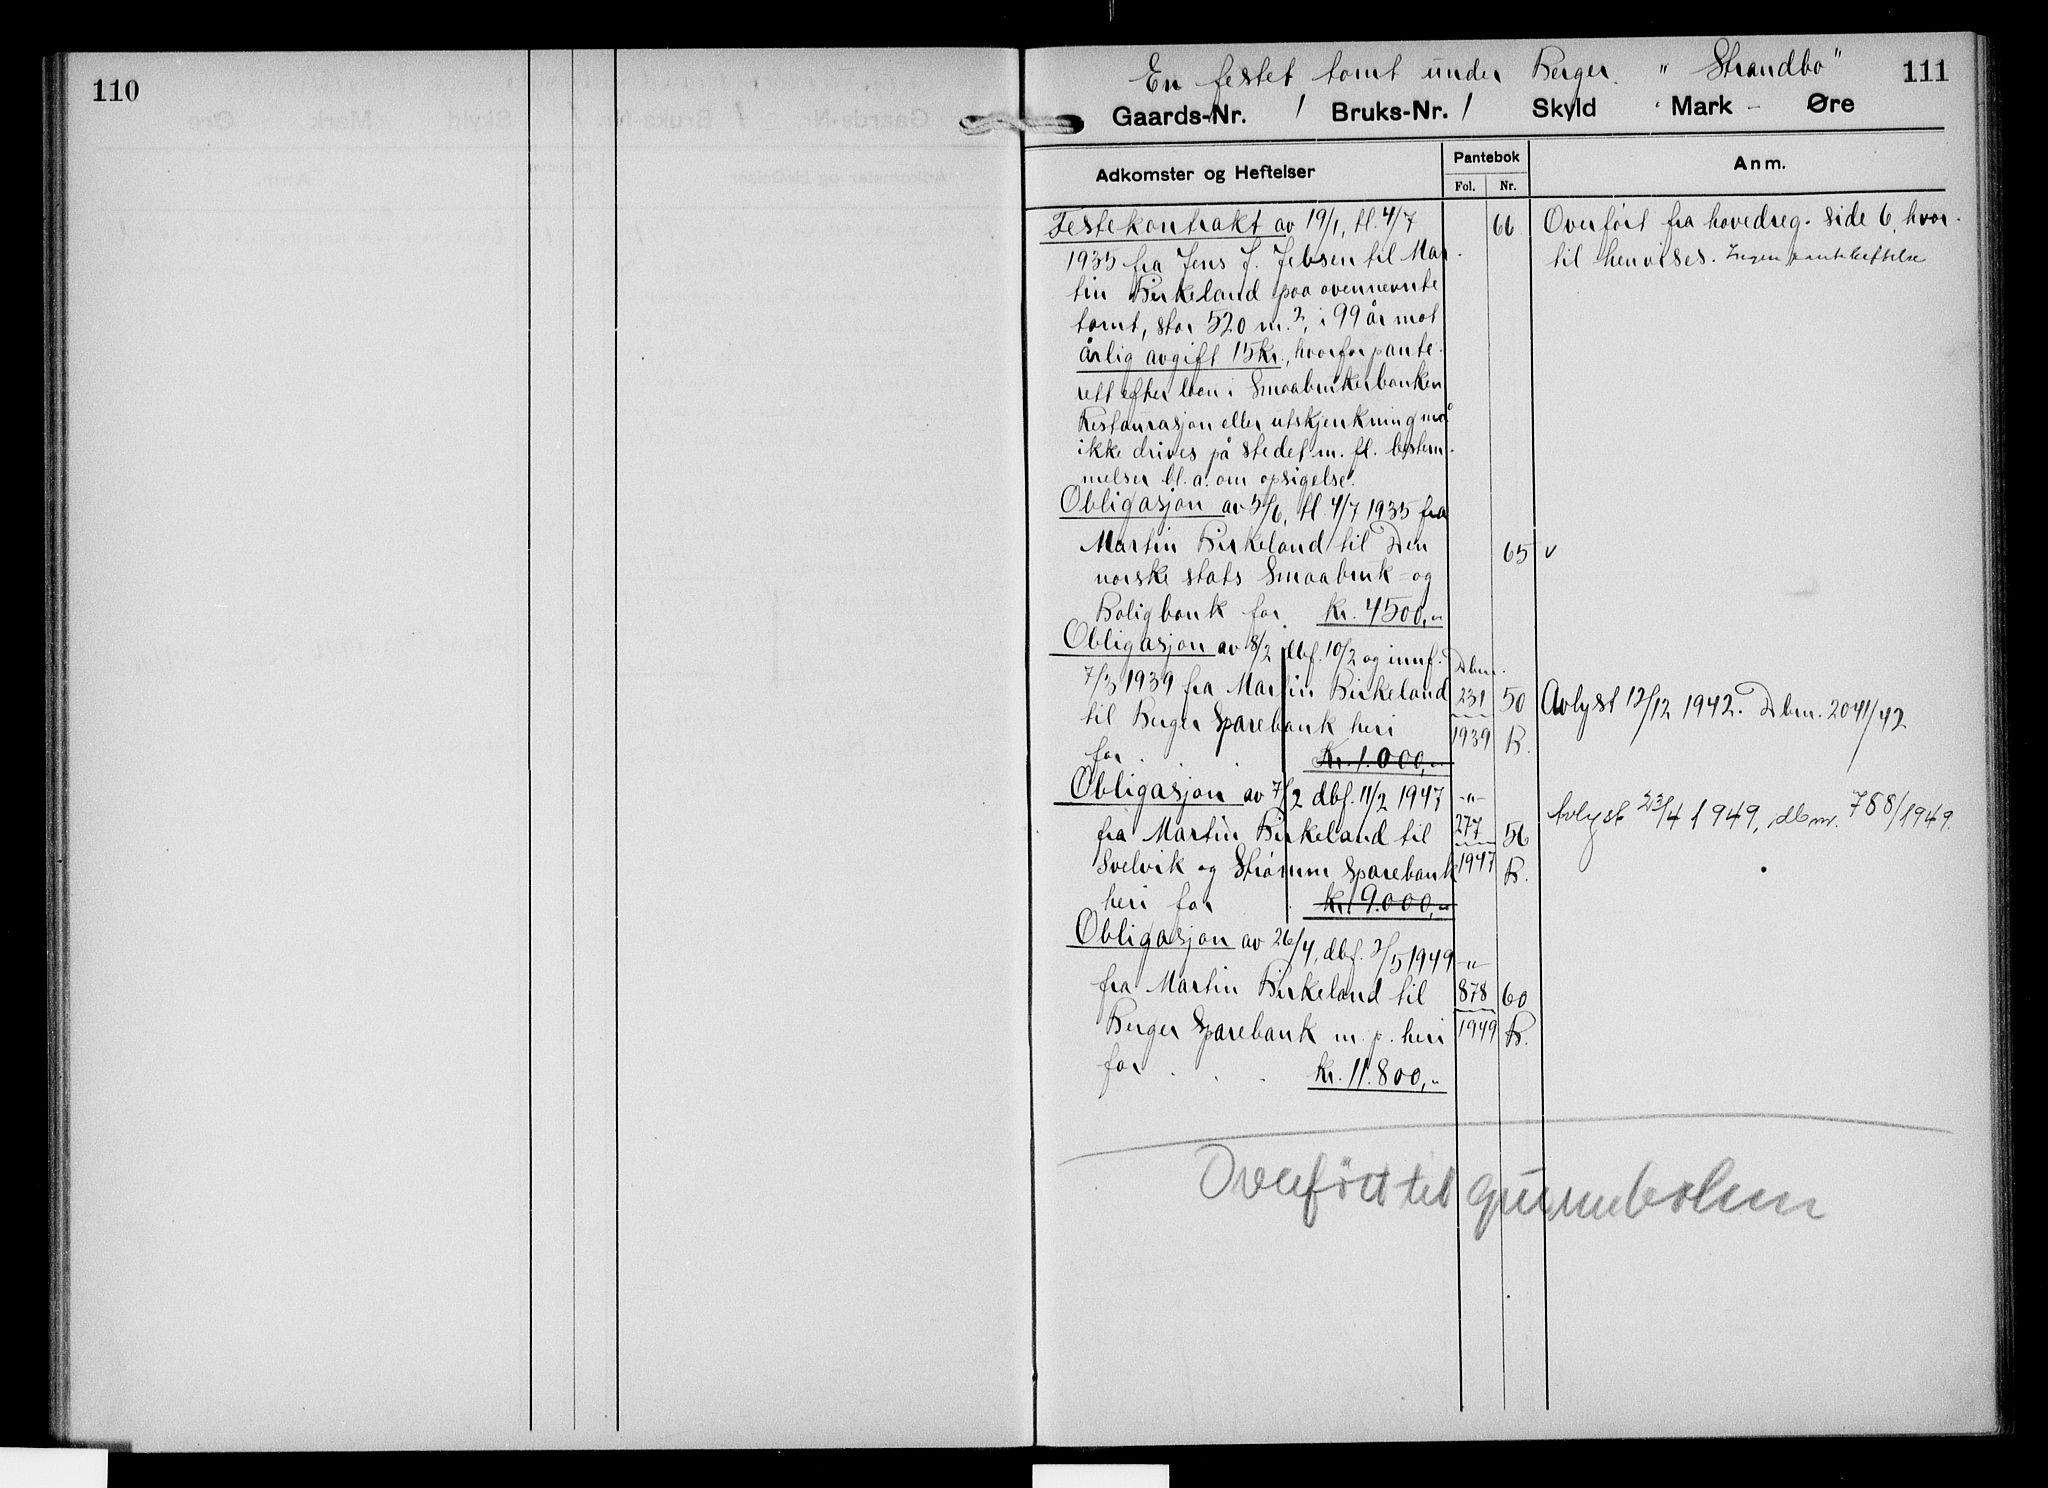 110
En festet tomt under Berger. " Strandbo"
111
Gaards-Nr. 1 Bruks-Nr. 1 Skyld Mark - Øre
Adkomster og Heftelser
Pantebok
Fol. Nr.
Anm.
Festekontrakt av 19/1, tl. 4/7
1935 fra Jens J. Jebsen til Mar-
tin Birkeland paa ovennevnte
tomt, stor 520 m.2, i 99 år mot
årlig avgift 15 kr., hvorfor pante-
rett efter laan i Smaabrukerbanken
Restaurasjon eller utskjenkning må
ikke drives på stedet m. fl. bestem-
melser bl. a. om opsigelse.
66
Overført fra hovedreg. side 6, hvor-
til henvises. Ingen pantheftelse
Obligasjon av 5/6, tl. 4/7 1935 fra
Martin Birkeland til Den
norske stats Smaabruk- og
Boligbank for kr. 4500,"
65
v
Obligasjon av 8/2 dbf. 10/2 og innf.
7/3 1939 fra Martin Birkeland
til Berger Sparebank heri
for . . Kr. 1.000,-
Dbnr.
231 50
1939 B.
Avlyst 12/12 1942. Dbnr. 2041/42
Obligasjon av 7/2 dbf. 11/2 1947
fra Martin Birkeland til
Svelvik og Strømm Sparebank
heri for . Kr. 9.000,-
-"-
277 56
1947 B.
Avlyst 23/4 1949, dbnr. 788/1949.
Obligasjon av 26/4, dbf. 2/5 1949
fra Martin Birkeland til
Berger Sparebank m. p. heri
for . . . Kr. 11.800,"
-"-
878 60
1949 B.
Overført til grunnboken